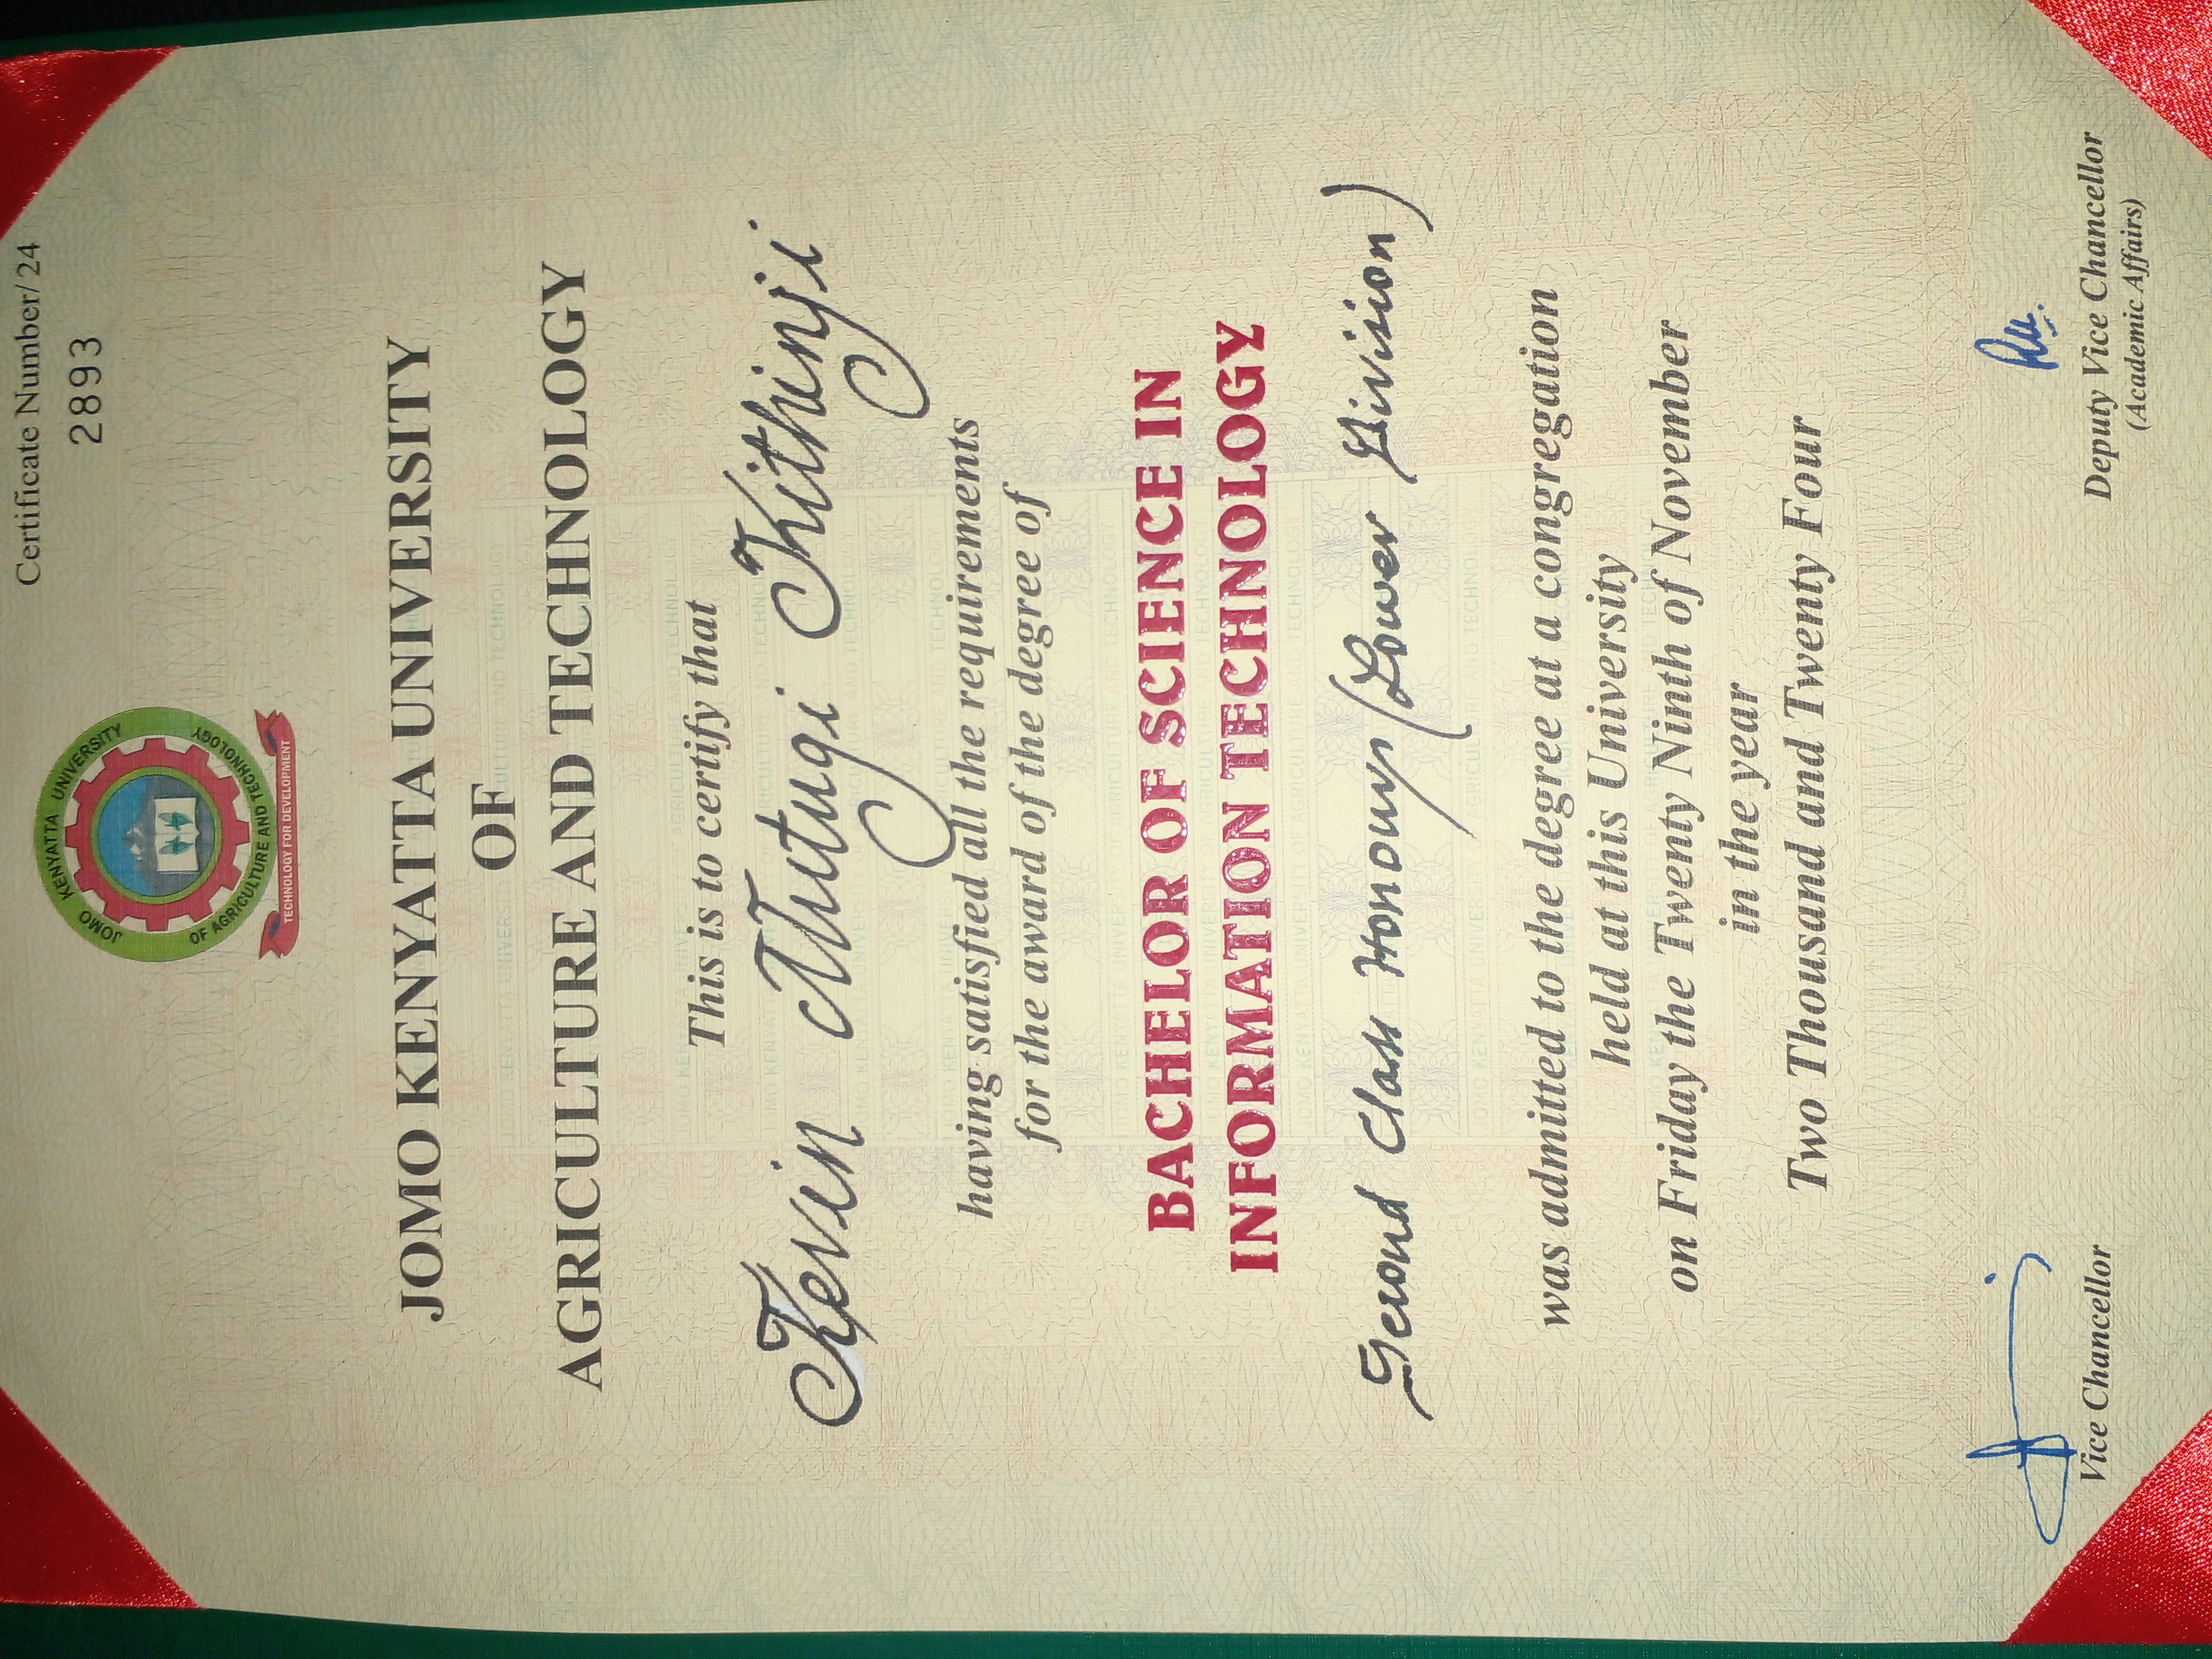 Certificate Number/ 24
2893
JOMO KENYATTA UNIVERSITY
OF AGRICULTURE AND TECHNOLOGY
TECHNOLOGY FOR DEVELOPMENT
JOMO KENYATTA UNIVERSITY
OF
AGRICULTURE AND TECHNOLOGY
This is to certify that
Kevin Mutugi Kithinji
having satisfied all the requirements
for the award of the degree of
BACHELOR OF SCIENCE IN
INFORMATION TECHNOLOGY
Second Class Honours (Lower Division)
was admitted to the degree at a congregation
held at this University
on Friday the Twenty Ninth of November
in the year
Two Thousand and Twenty Four
Vice Chancellor
Deputy Vice Chancellor
(Academic Affairs)